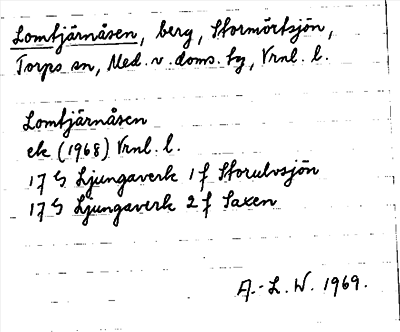 Lomtjärnåsen, berg, Stormörtsjön,
Torps sn, Med. v. doms. tg, Vrnl. l.
Lomtjärnåsen
ek (1968) Vrnl. l.
17 G Ljungaverk 1 f Storulvsjön
17 G Ljungaverk 2 f Saxen
A.-L. W. 1969.